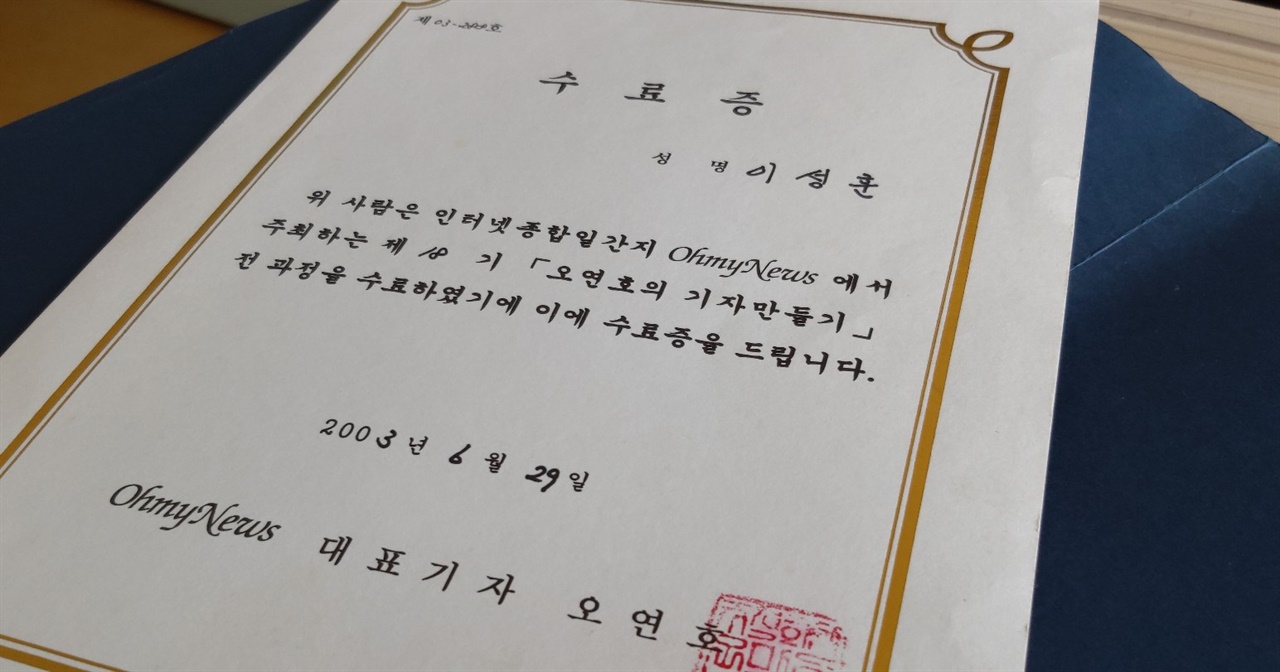 수 료 증
성 명 이성훈
위 사람은 인터넷종합일간지 OhmyNews 에서
주최하는 제 18 기 「오연호의 기자만들기」
전 과정을 수료하였기에 이에 수료증을 드립니다.
2003년 6월 29일
OhmyNews 대표기자 오연호